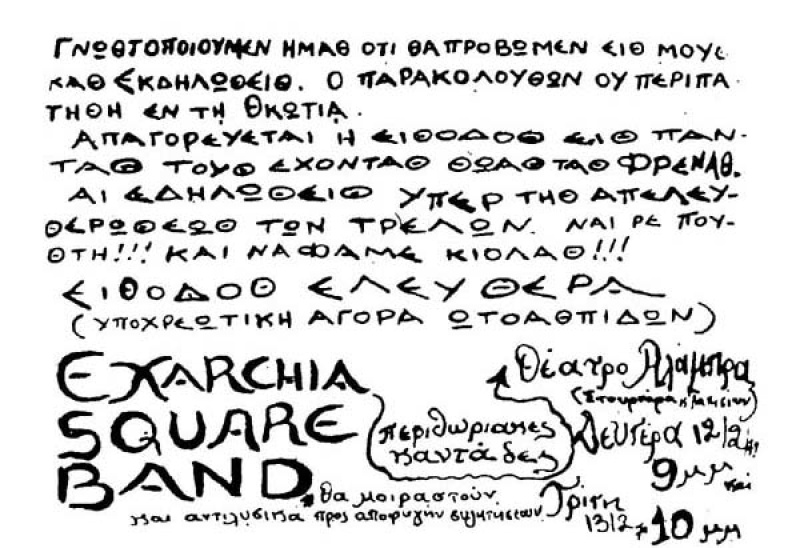 ΓΝΩΘΤΟΠΟΙΟΥΜΕΝ ΗΜΑΘ ΟΤΙ ΘΑ ΠΡΟΒΩΜΕΝ ΕΙΘ ΜΟΥΣ
ΚΑΘ ΕΚΔΗΛΩΘΕΙΘ. Ο ΠΑΡΑΚΟΛΟΥΘΩΝ ΟΥ ΠΕΡΙΠΑ
ΤΗΘΗ ΕΝ ΤΗ ΘΚΩΤΙΑ.
ΑΠΑΓΟΡΕΥΕΤΑΙ Η ΕΙΘΟΔΟΘ ΕΙΘ ΠΑΝ-
ΤΑΘ ΤΟΥΘ ΕΧΟΝΤΑΘ ΘΩΑΘ ΤΑΘ ΦΡΕΝΑΘ.
ΑΙ ΕΔΗΛΩΘΕΙΘ ΥΠΕΡ ΤΗΘ ΑΠΕΛΕΥ-
ΘΕΡΩΘΕΩΘ ΤΩΝ ΤΡΕΛΩΝ. ΝΑΙ ΡΕ ΠΟΥ-
ΘΤΗ!!! ΚΑΙ ΝΑ ΦΑΜΕ ΚΙΟΛΑΘ!!!
ΕΙΘΟΔΟΘ ΕΛΕΥΘΕΡΑ
(ΥΠΟΧΡΕΩΤΙΚΗ ΑΓΟΡΑ ΩΤΟΑΘΠΙΔΩΝ)
EXARCHIA
SQUARE
BAND
περιθωριακες
κανταδες
Θέατρο Αλάμπρα
Δευτέρα 12/2
9 μμ και
Τρίτη
13/2
10 μμ
θα μοιραστούν
και αντιλυσικα προς αποφυγήν συζητήσεων